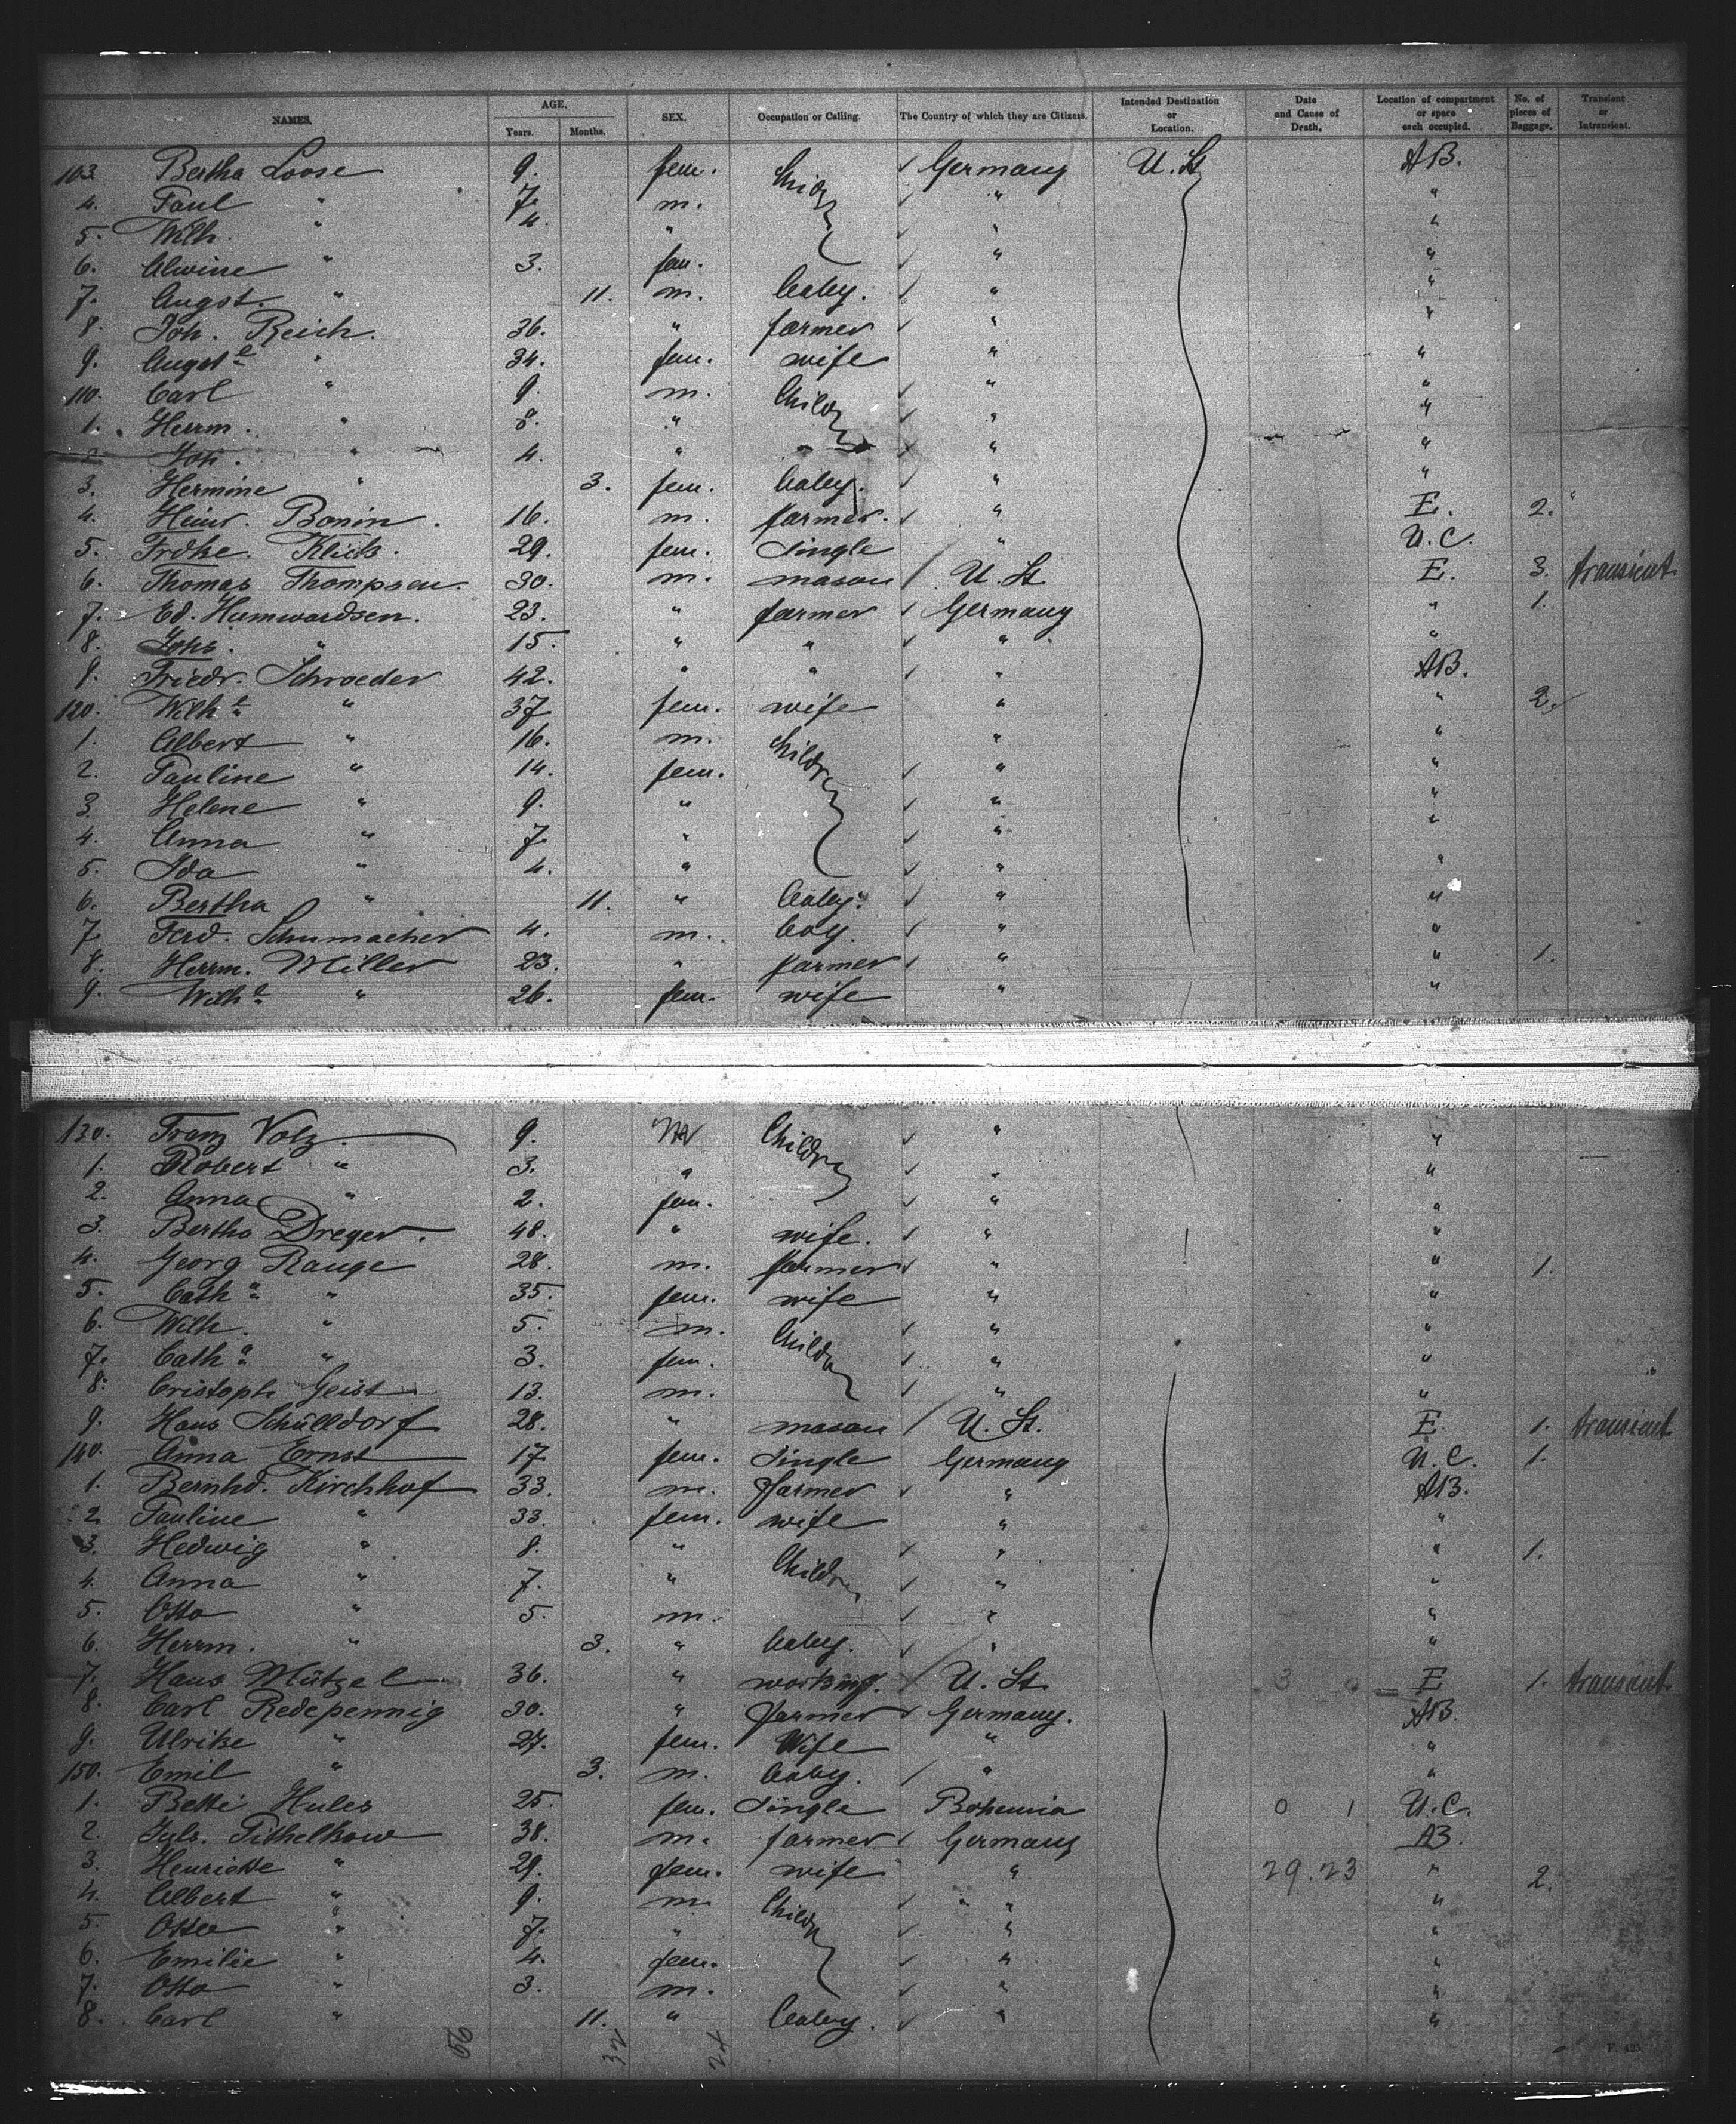 NAMES. AGE. Years. Months. SEX. Occupation or Calling. The Country of which they are Citizens. Intended Destination or Location. Date and Cause of Death. Location of compartment or space each occupied. No. of pieces of Baggage. Transient or Intransient.
103. Bertha Loose 9. fem. Childr ✓ Germany U. St. AB.
4. Paul " 7. m. ✓ " "
5. Wilh. " 4. " ✓ " "
6. Alwine " 3. fem. ✓ " "
7. Augst. " 11. m. baby. ✓ " "
8. Joh. Reich. 36. " farmer ✓ " "
9. Augste " 34. fem. wife " "
110. Carl " 9. m. Childr ✓ " "
1. Herrm. " 8. " ✓ " "
2. Joh. " 4. " ✓ " "
3. Hermine " 3. fem. baby. ✓ " "
4. Heinr. Bonin. 16. m. farmer. ✓ " E. 2.
5. Frdke. Klick. 29. fem. Single " U.C.
6. Thomas Thompsen. 30. m. mason / U. St. E. 3. transient
7. Ed. Humwardsen. 23. " farmer ✓ Germany " 1.
8. Johs. " 15. " " ✓ " "
9. Friedr. Schroeder 42. " " ✓ " AB.
120. Wilhe " 37 fem. wife " " 2.
1. Albert " 16. m. Childr " "
2. Pauline " 14. fem. ✓ " "
3. Helene " 9. " ✓ " "
4. Anna " 7. " ✓ " "
5. Ida " 4. " ✓ " "
6. Bertha " 11. " baby. ✓ " "
7. Ferd. Schumacher 4. m. boy. ✓ " "
8. Herrm. Miller 23. " farmer ✓ " " 1.
9. Wilhe " 26. fem. wife " "
130. Franz Volz. 9. m Childr ✓ " "
1. Robert " 3. " ✓ " "
2. Anna " 2. fem. ✓ " "
3. Bertha Dreyer. 48. " wife. ✓ " "
4. Georg Range 28. m. farmer ✓ " " 1.
5. Catha " 35. fem. wife " "
6. Wilh. " 5. m. Childr ✓ " "
7. Catha " 3. fem. ✓ " "
8. Cristoph Geist 13. m. ✓ " "
9. Hans Schülldorf 28. " mason / U. St. E. 1. transient
140. Anna Ernst 17 fem. Single Germany U.C. 1.
1. Bernhd. Kirchhof 33. m. farmer ✓ " AB.
2. Pauline " 33. fem. wife " "
3. Hedwig " 8. " Childr ✓ " " 1.
4. Anna " 7. " ✓ " "
5. Otto " 5. m. ✓ " "
6. Herrm. " 3. " baby. ✓ " "
7. Hans Mützel 36. " U. St. E 1. transient
8. Carl Redepennig 30. " farmer ✓ Germany. AB.
9. Ulrike " 27. fem. Wife " "
150. Emil " 3. m. baby. / " "
1. Betti Hules 25. fem. Single Bohemia 0 1 U.C.
2. Juls. Pithelkow 38. m. farmer ✓ Germany AB.
3. Henriette " 29. fem. wife " 29.23 " 2.
4. Albert " 9. m Childr ✓ " "
5. Otto " 7. " ✓ " "
6. Emilie " 4. fem. ✓ " "
7. Otto " 3. m. ✓ " "
8. Carl " 11. " baby. ✓ " "
56 32 24